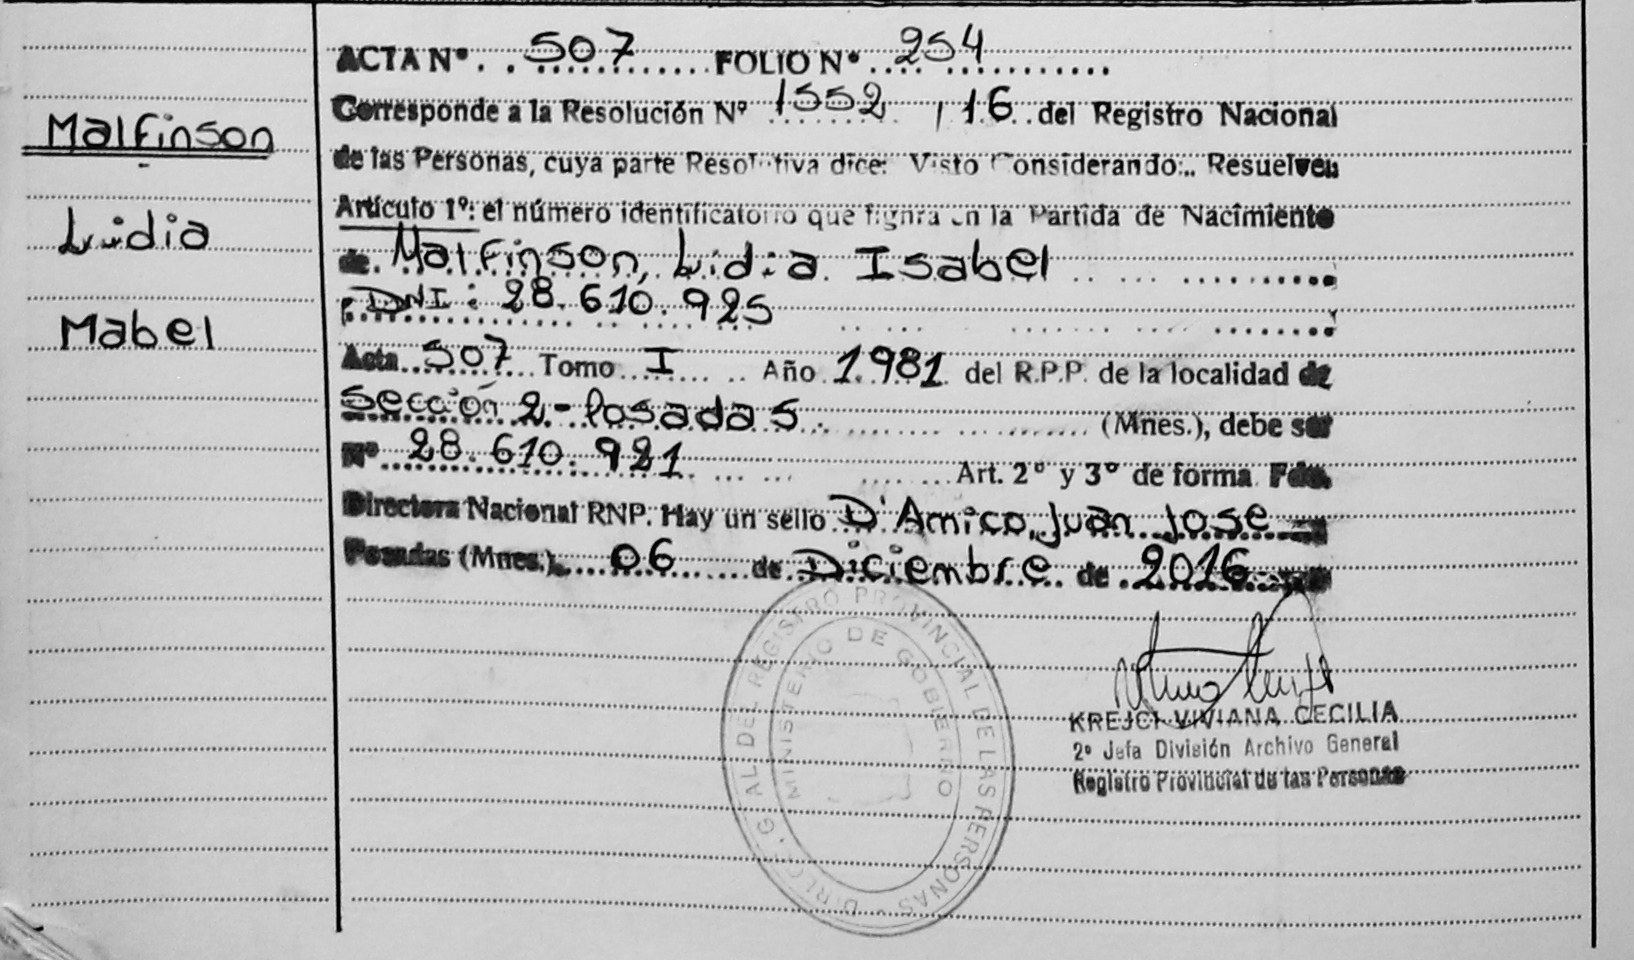 Malfinson
Lidia
Mabel
ACTA Nº 507 FOLIO Nº 254
Corresponde a la Resolución Nº 1552 / 16 del Registro Nacional
de las Personas, cuya parte Resolutiva dice: Visto Considerando:.. Resuelven
Artículo 1º: el número identificatorio que figura en la Partida de Nacimiento
de Malfinson, Lidia Isabel
DNI: 28.610.925
Acta 507 Tomo I Año 1981 del R.P.P. de la localidad de
Sección 2 - Posadas (Mnes.), debe ser
Nº 28.610.921 Art. 2º y 3º de forma Fdo.
Directora Nacional RNP. Hay un sello D'Amico, Juan Jose
Posadas (Mnes.), 06 de Diciembre de 2016
KREJCI VIVIANA CECILIA
2º Jefa División Archivo General
Registro Provincial de las Personas
GRAL DEL REGISTRO PROVINCIAL DE LAS PERSONAS
MINISTERIO DE GOBIERNO